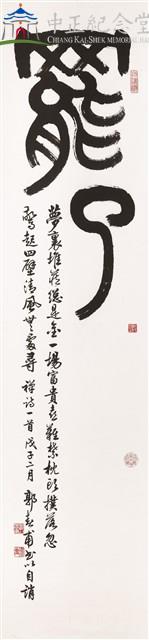 中正紀念堂
CHIANG KAI-SHEK MEMORIAL
罷了
夢裏堆藏總是金一場富貴喜難禁枕頭撲落忽
驚起四壁清風無處尋 禪詩一首 戊子二月 郭春甫書以自誚